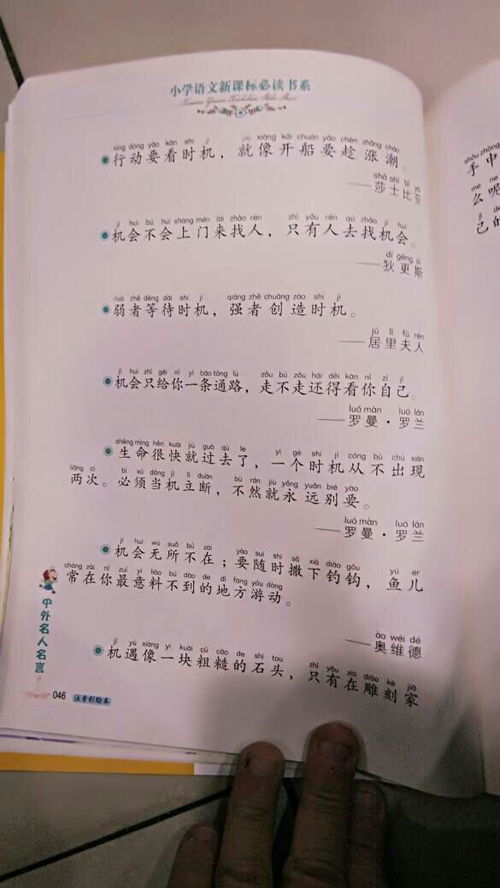 小学语文新课标必读书系
xíng dòng yào kàn shí jī jiù xiàng kāi chuán yào chèn zhǎng cháo
行动要看时机，就像开船要趁涨潮。
shā shì bǐ yà
——莎士比亚
jī huì bú huì shàng mén lái zhǎo rén zhǐ yǒu rén qù zhǎo jī huì
机会不会上门来找人，只有人去找机会。
dí gēng sī
——狄更斯
ruò zhě děng dài shí jī qiáng zhě chuàng zào shí jī
弱者等待时机，强者创造时机。
jū lǐ fū rén
——居里夫人
jī huì zhǐ gěi nǐ yì tiáo tōng lù zǒu bù zǒu hái děi kàn nǐ zì jǐ
机会只给你一条通路，走不走还得看你自己。
luó màn luó lán
——罗曼·罗兰
shēng mìng hěn kuài jiù guò qù le
生命很快就过去了，一个时机从不出现
liǎng cì bì xū dāng jī lì duàn bù rán jiù yǒng yuǎn bié yào
两次。必须当机立断，不然就永远别要。
luó màn luó lán
——罗曼·罗兰
jī huì wú suǒ bú zài yào suí shí sā xià diào gōu yú ér
机会无所不在；要随时撒下钓钩，鱼儿
cháng zài nǐ zuì yì liào bú dào de dì fang yóu dòng
常在你最意料不到的地方游动。
ào wéi dé
——奥维德
jī yù xiàng yí kuài cū cāo de shí tou zhǐ yǒu zài diāo kè jiā
机遇像一块粗糙的石头，只有在雕刻家
中外名人名言
046 注音彩绘本
shǒu zhōng
手中
me ne
么呢
己的